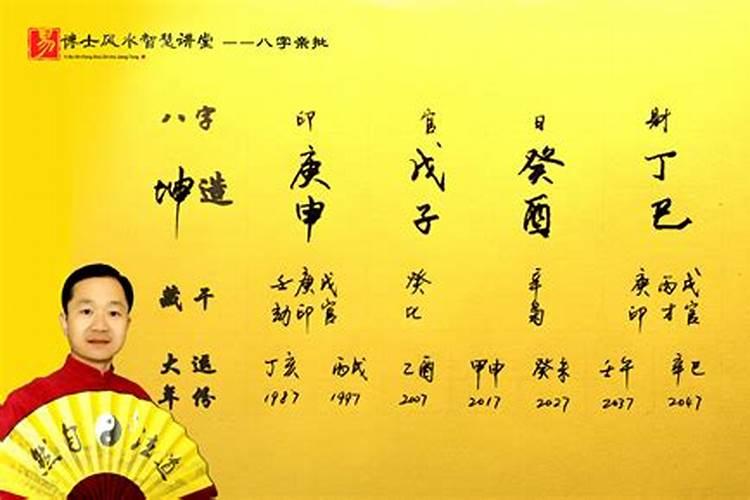 易 博士风水智慧讲堂 ——八字亲批
八字 印 官 日 财
坤造 庚申 戊子 癸酉 丁巳
藏干 壬劫 庚印 戊官 癸比 辛枭 庚印 丙才 戊官
大运 丁亥 丙戌 乙酉 甲申 癸未 壬午 辛巳
年份 1987 1997 2007 2017 2027 2037 2047
然自法道